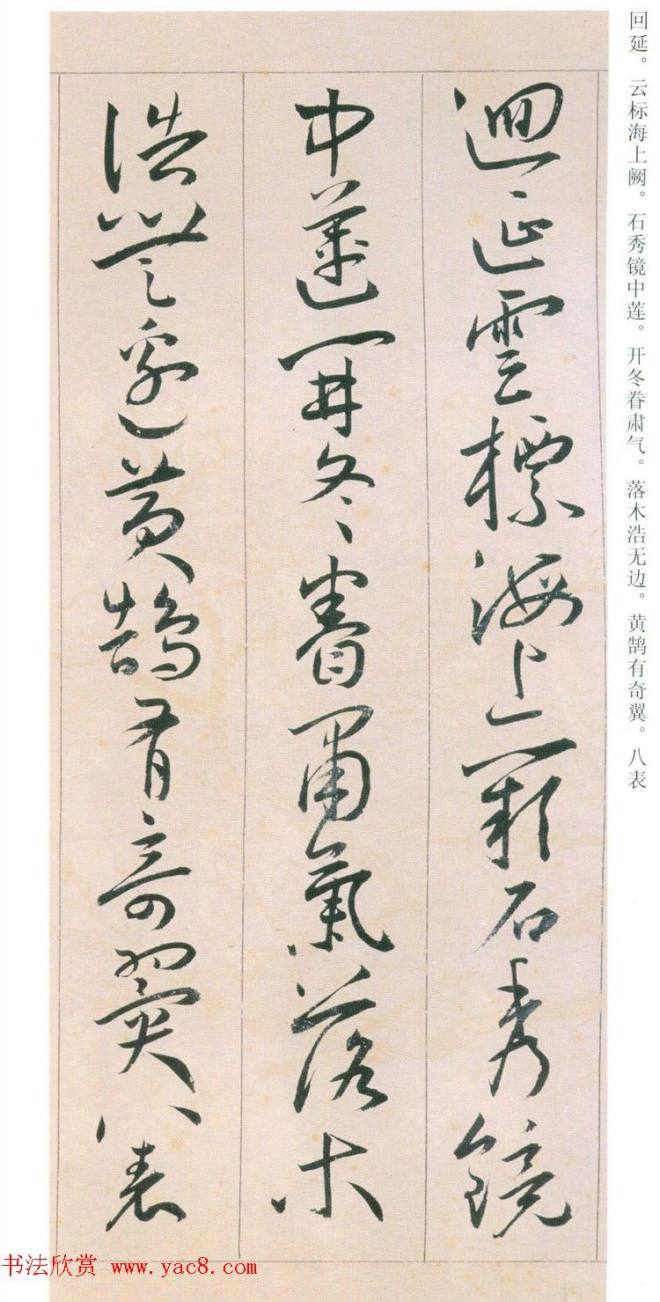 迴延雲標海上闕石秀鏡
中蓮開冬眷肅氣落木
浩無邊黄鵠有奇翼八表
回延。云标海上阙。石秀镜中莲。开冬眷肃气。落木浩无边。黄鹄有奇翼。八表
书法欣赏 www.yac8.com